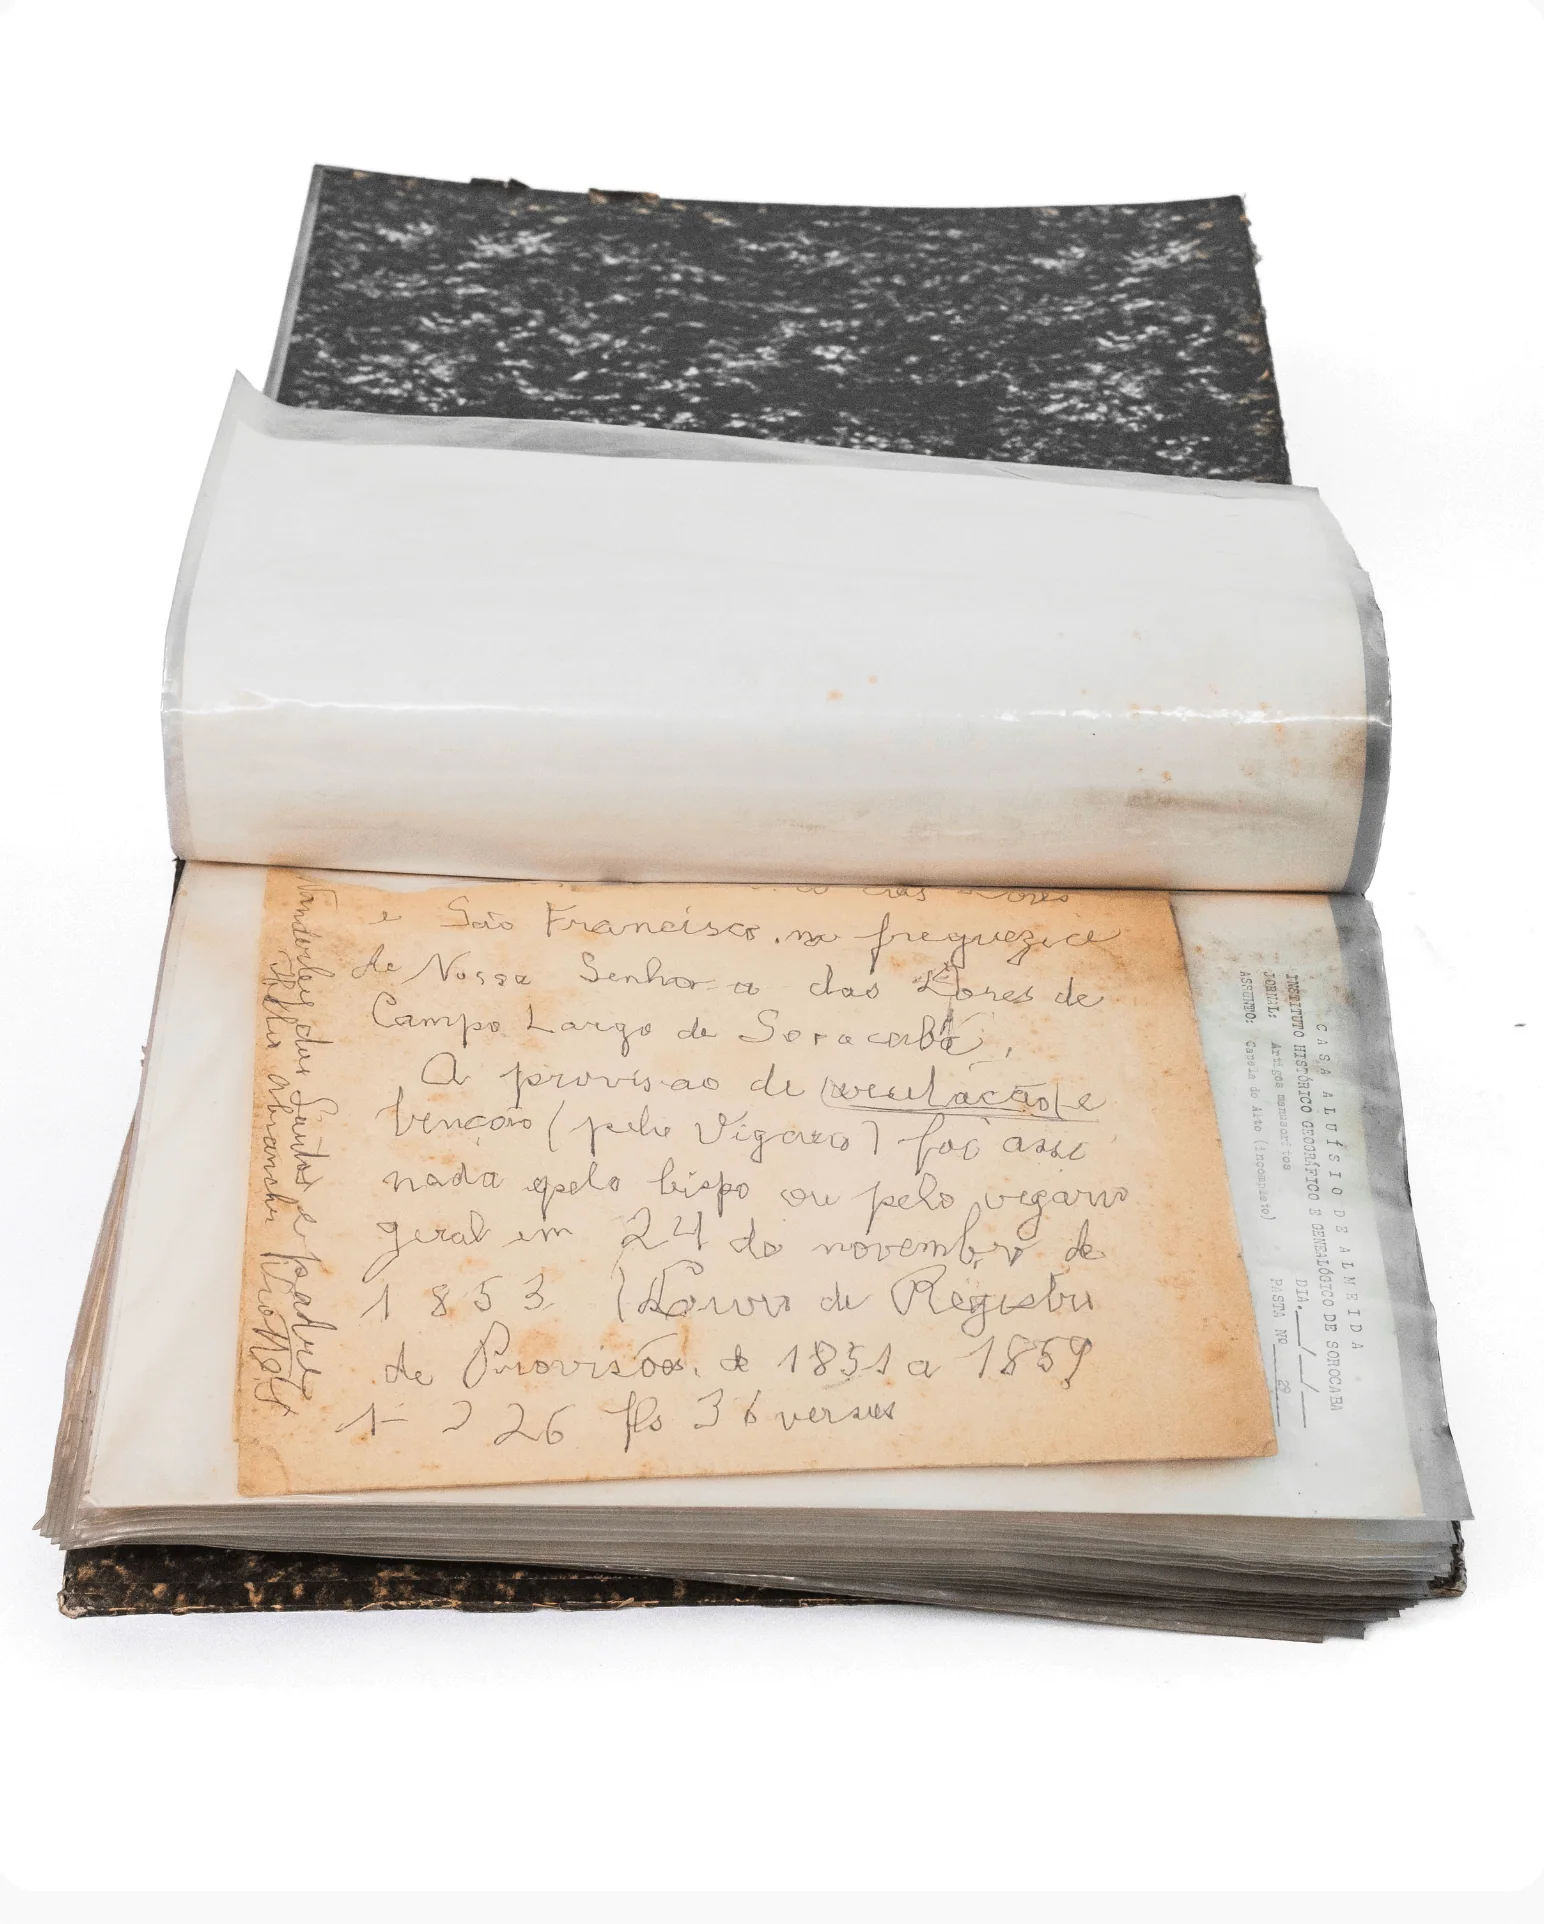 das Dores
e São Francisco, na freguezia
de Nossa Senhora das Dores de
Campo Largo de Sorocaba,
A provisao de ereclação e
benção (pelo Vigario) foi assi
nada pelo bispo ou pelo vigario
geral em 24 do novembro de
1853 (Livro de Registro
de Provisões de 1851 a 1859
226 fls 36 versus
Vanderley dos Santos e padre
CASA ALUÍSIO DE ALMEIDA
INSTITUTO HISTÓRICO GEOGRÁFICO E GENEALÓGICO DE SOROCABA
JORNAL: Artigos manuscritos DIA.__/__/__
ASSUNTO: Capela do Alto (incompleto) PASTA Nº 29